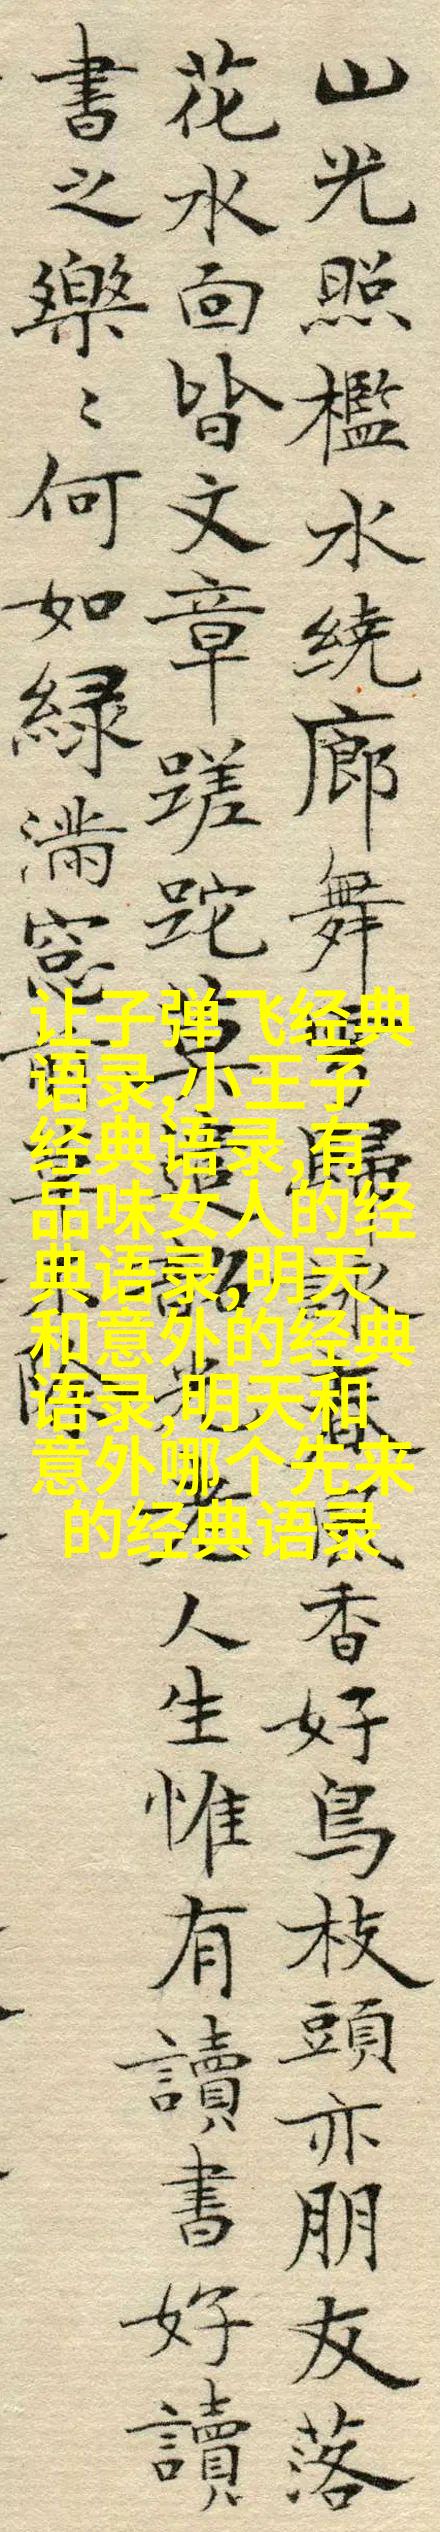 山光照檻水绕廊舞雩歸詠春風香好鳥枝頭亦朋友落
花水面皆文章蹉跎莫遣韶光老人生惟有讀書好讀
書之樂〻何如緑满窓前草不除
让子弹飞经典
语录,小王子
经典语录,有
品味女人的经
典语录,明天
和意外的经典
语录,明天和
意外哪个先来
的经典语录